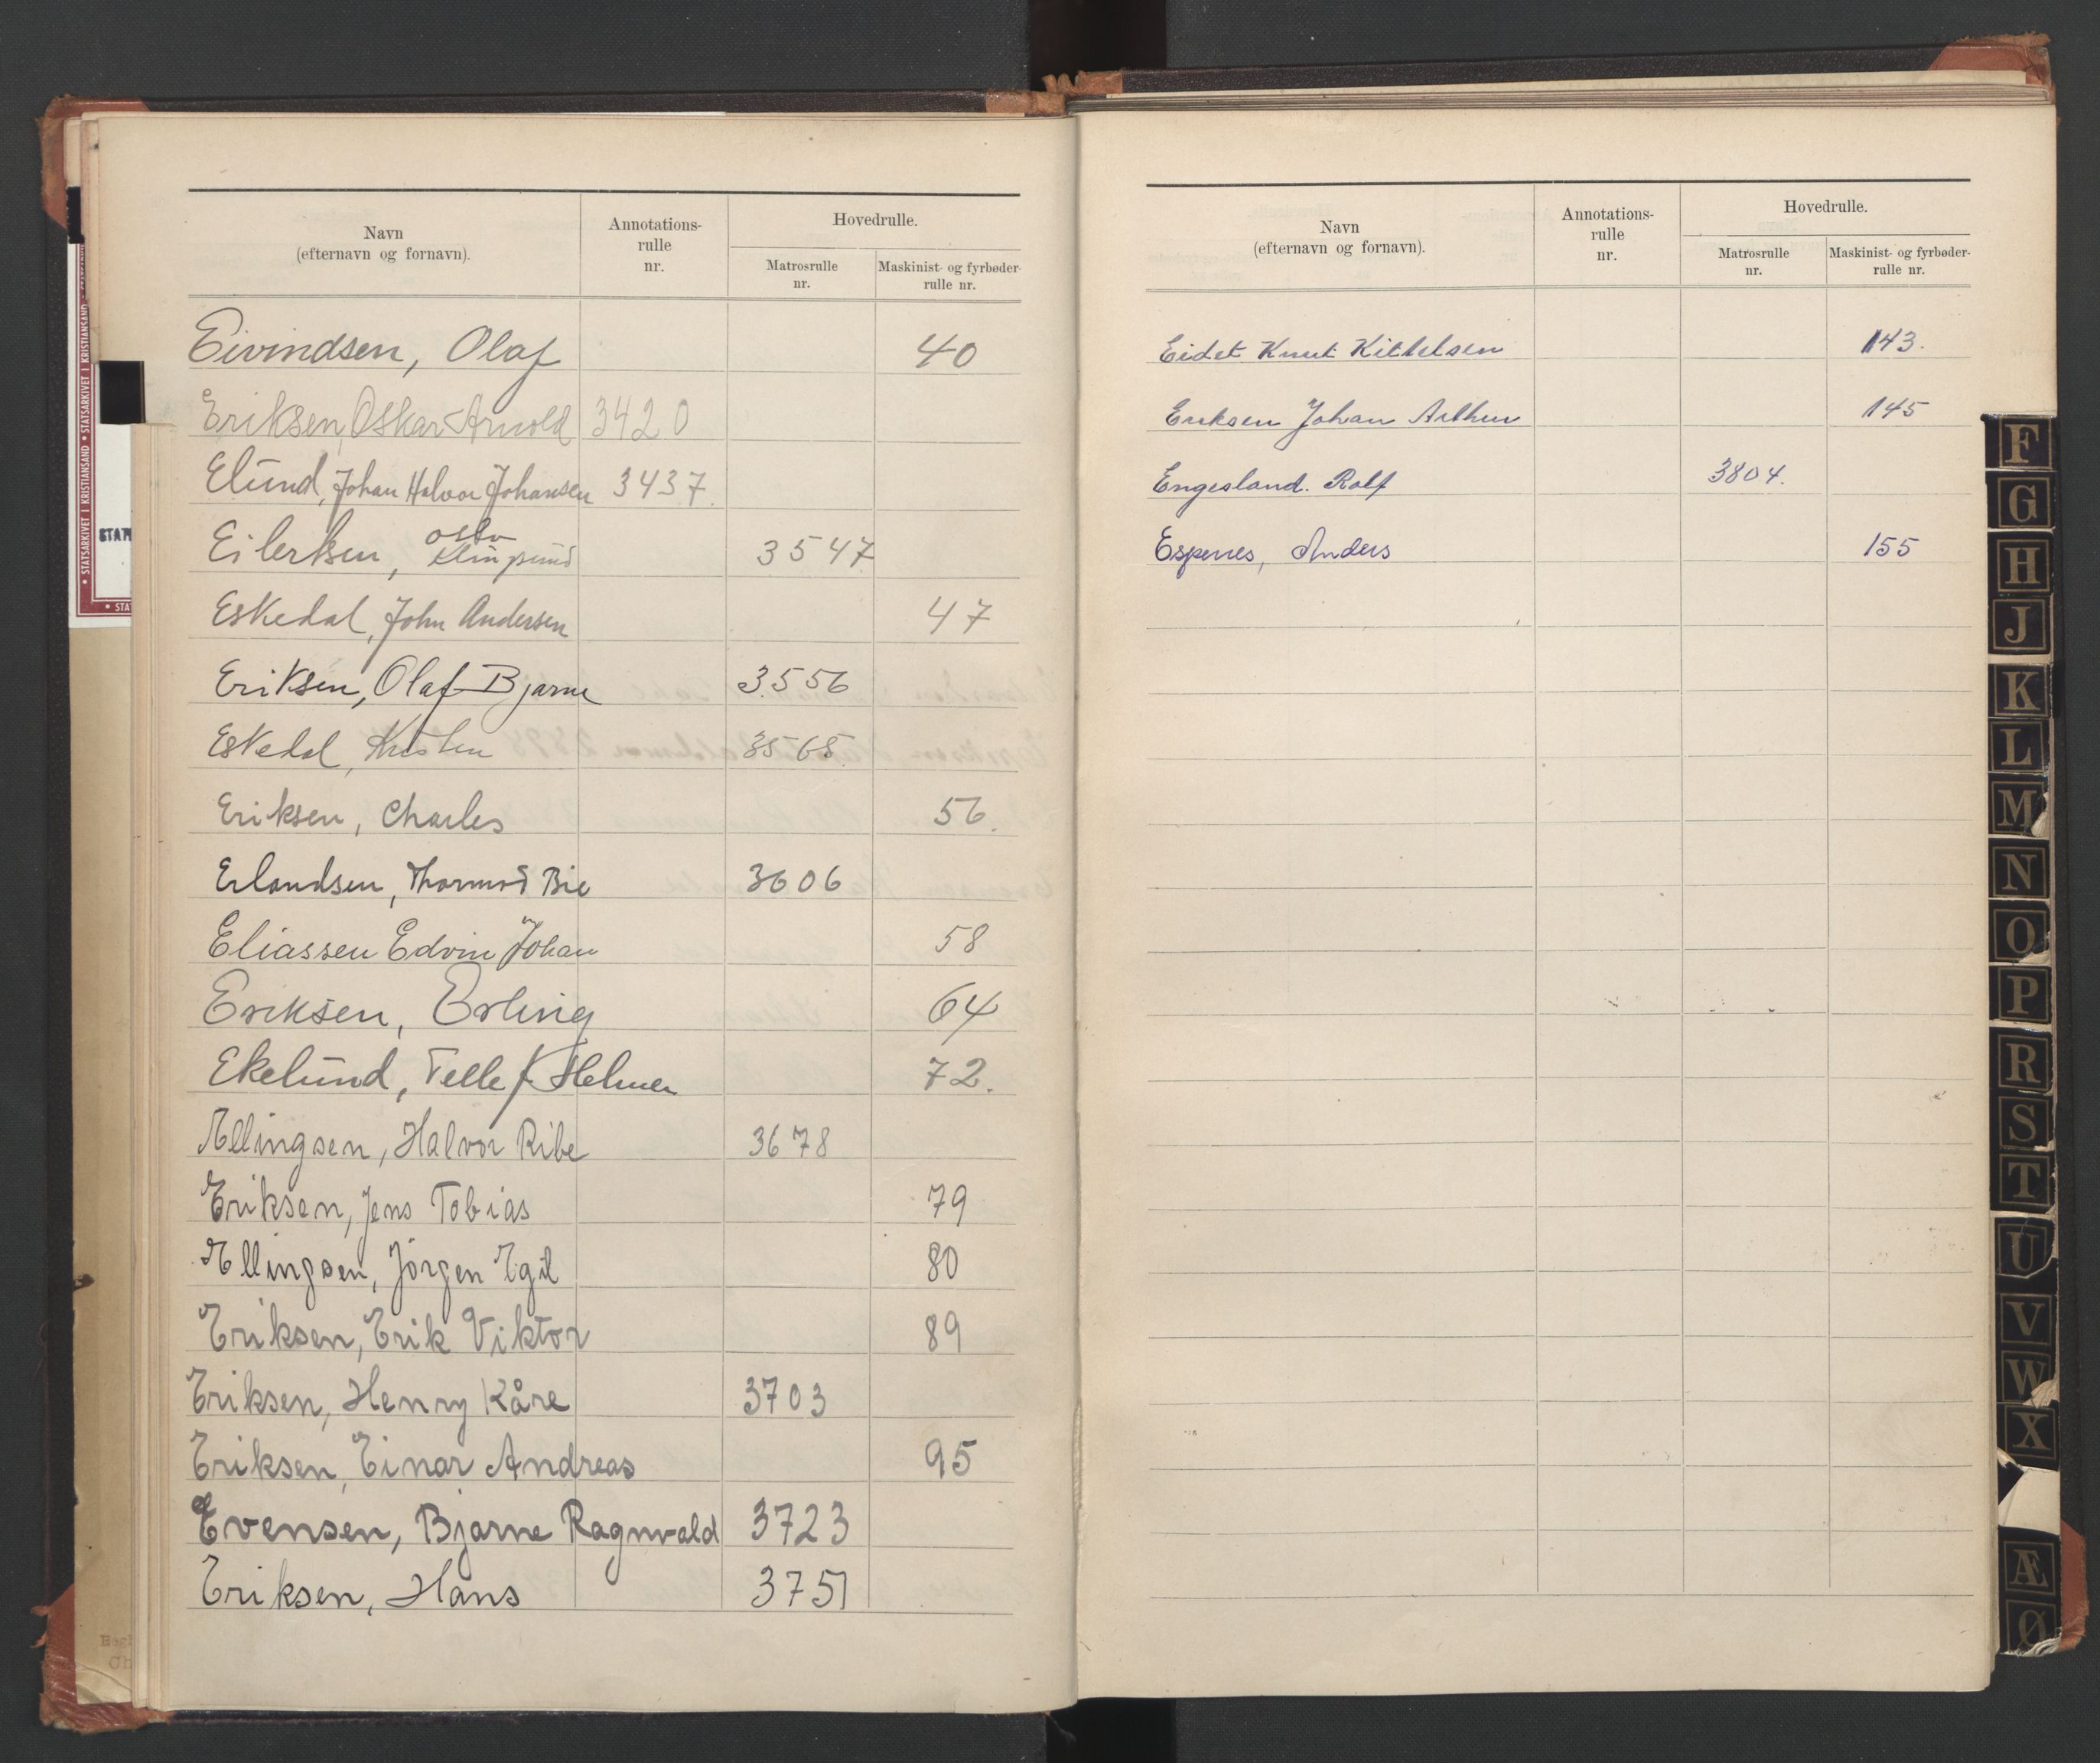 Navn
(efternavn og fornavn).
Annotations-
rulle
nr.
Hovedrulle.
Matrosrulle
nr.
Maskinist- og fyrbøder-
rulle nr.
Eivindsen, Olaf 40
Eriksen, Oskar Arnold 3420
Elund, Johan Halvor Johansen 3437.
Oslo
Eilertsen, 3547
Eskedal, John Andersen 47
Eriksen, Olaf Bjarne 3556
Eskedal, Kristen 3565
Eriksen, Charles 56.
Erlandsen, Thormod Bie 3606
Eliassen Edvin Johan 58
Eriksen, Erling 64
Ekelund, Tellef Helmer 72.
Ellingsen, Halvor Ribe 3678
Eriksen, Jens Tobias 79
Ellingsen, Jörgen Egil 80
Eriksen, Erik Viktor 89
Eriksen, Henry Kåre 3703
Eriksen, Einar Andreas 95
Evensen, Bjarne Ragnvald 3723
Eriksen, Hans 3751
Navn
(efternavn og fornavn).
Annotations-
rulle
nr.
Hovedrulle.
Matrosrulle
nr.
Maskinist- og fyrbøder-
rulle nr.
Eidet Knut Kittelsen 143.
Eriksen Johan Arthur 145
Engesland. Rolf 3804.
Espenes, Anders 155
F
G
H
J
K
L
M
N
O
P
R
S
T
U
V
W
X
Æ
Ø
• STATSARKIVET I KRISTIANSAND • STATSARKIVET I KRISTIANSAND •